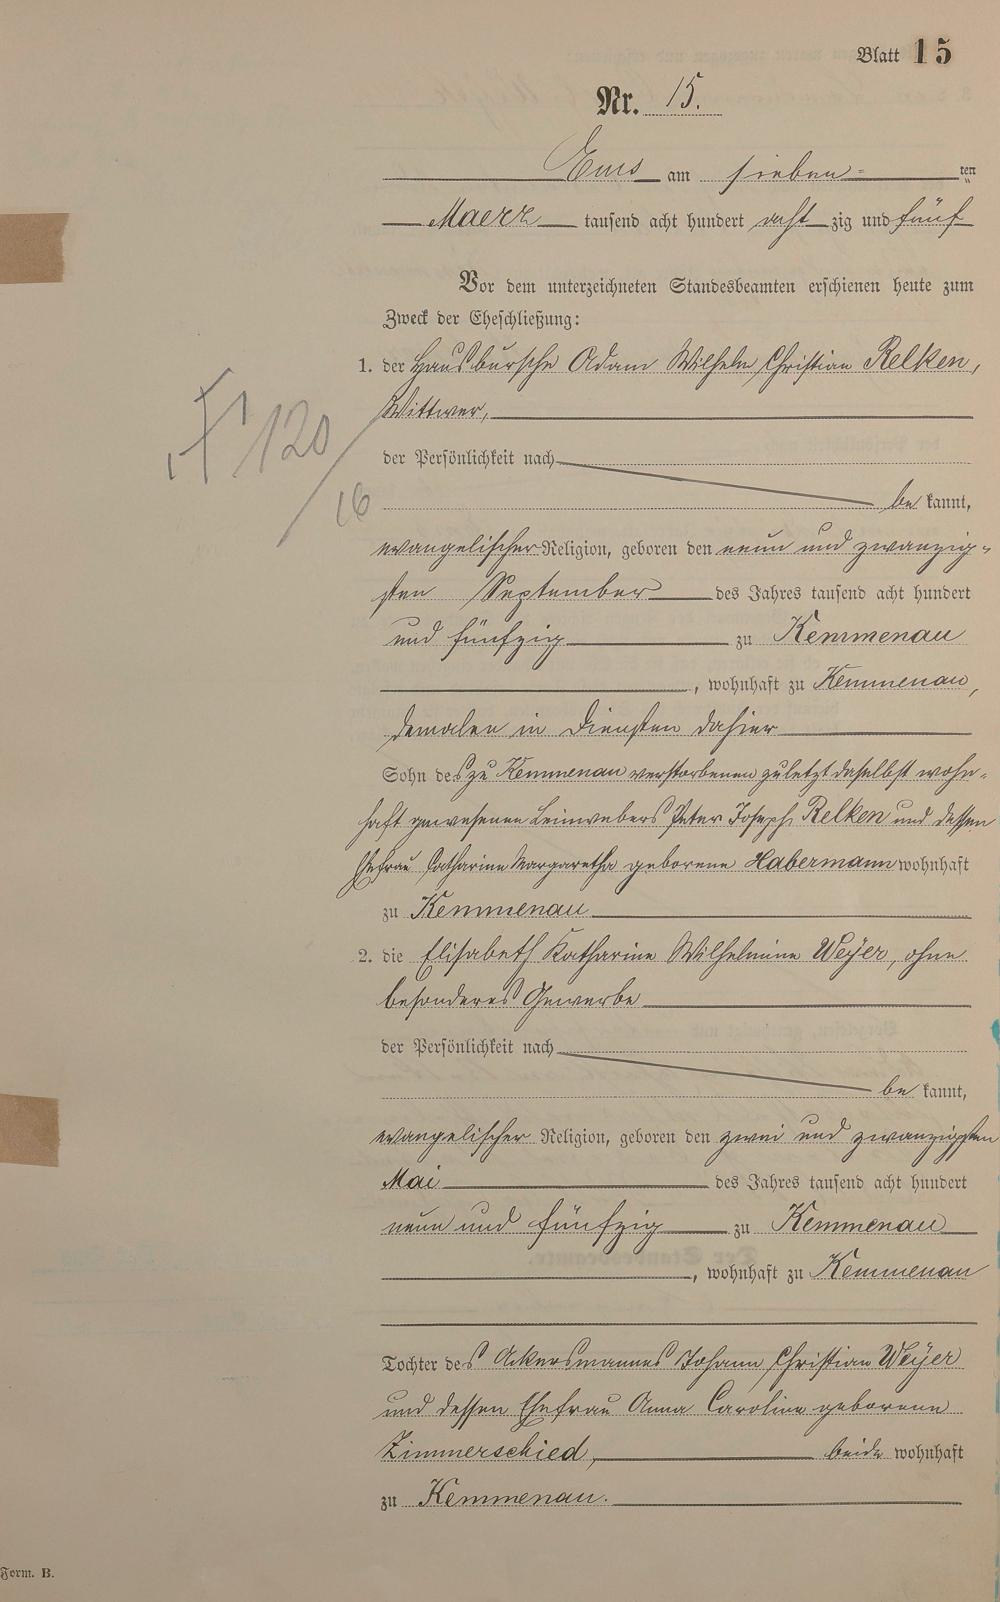 Blatt 15
Nr. 15.
Ems am sieben=ten
Maerz tausend acht hundert acht zig und fünf
Vor dem unterzeichneten Standesbeamten erschienen heute zum
Zweck der Eheschließung:
1. der Hausbursche Adam Wilhelm Christian Relken,
Wittwer,
der Persönlichkeit nach
be kannt,
evangelischer Religion, geboren den neun und zwanzig=
sten September des Jahres tausend acht hundert
und fünfzig zu Kemmenau
, wohnhaft zu Kemmenau,
demalen in Diensten dahier
Sohn des zu Kemmenau verstorbenen zuletzt daselbst wohn=
haft gewesenen Leinwebers Peter Joseph Relken und dessen
Ehefrau Catharine Margaretha geborene Habermann wohnhaft
zu Kemmenau
2. die Elisabeth Katharine Wilhelmine Weyer, ohne
besonderes Gewerbe
der Persönlichkeit nach
be kannt,
evangelischer Religion, geboren den zwei und zwanzigsten
Mai des Jahres tausend acht hundert
neun und fünfzig zu Kemmenau
, wohnhaft zu Kemmenau
Tochter des Ackersmannes Johann Christian Weyer
und dessen Ehefrau Anna Caroline geborene
Zimmerschied, beide wohnhaft
zu Kemmenau.
120/16
Form. B.